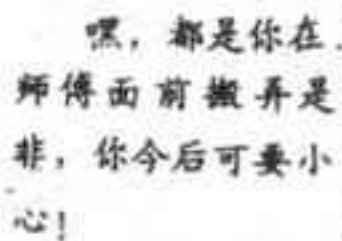 嘿，都是你在
师傅面前搬弄是
非，你今后可要小
心！